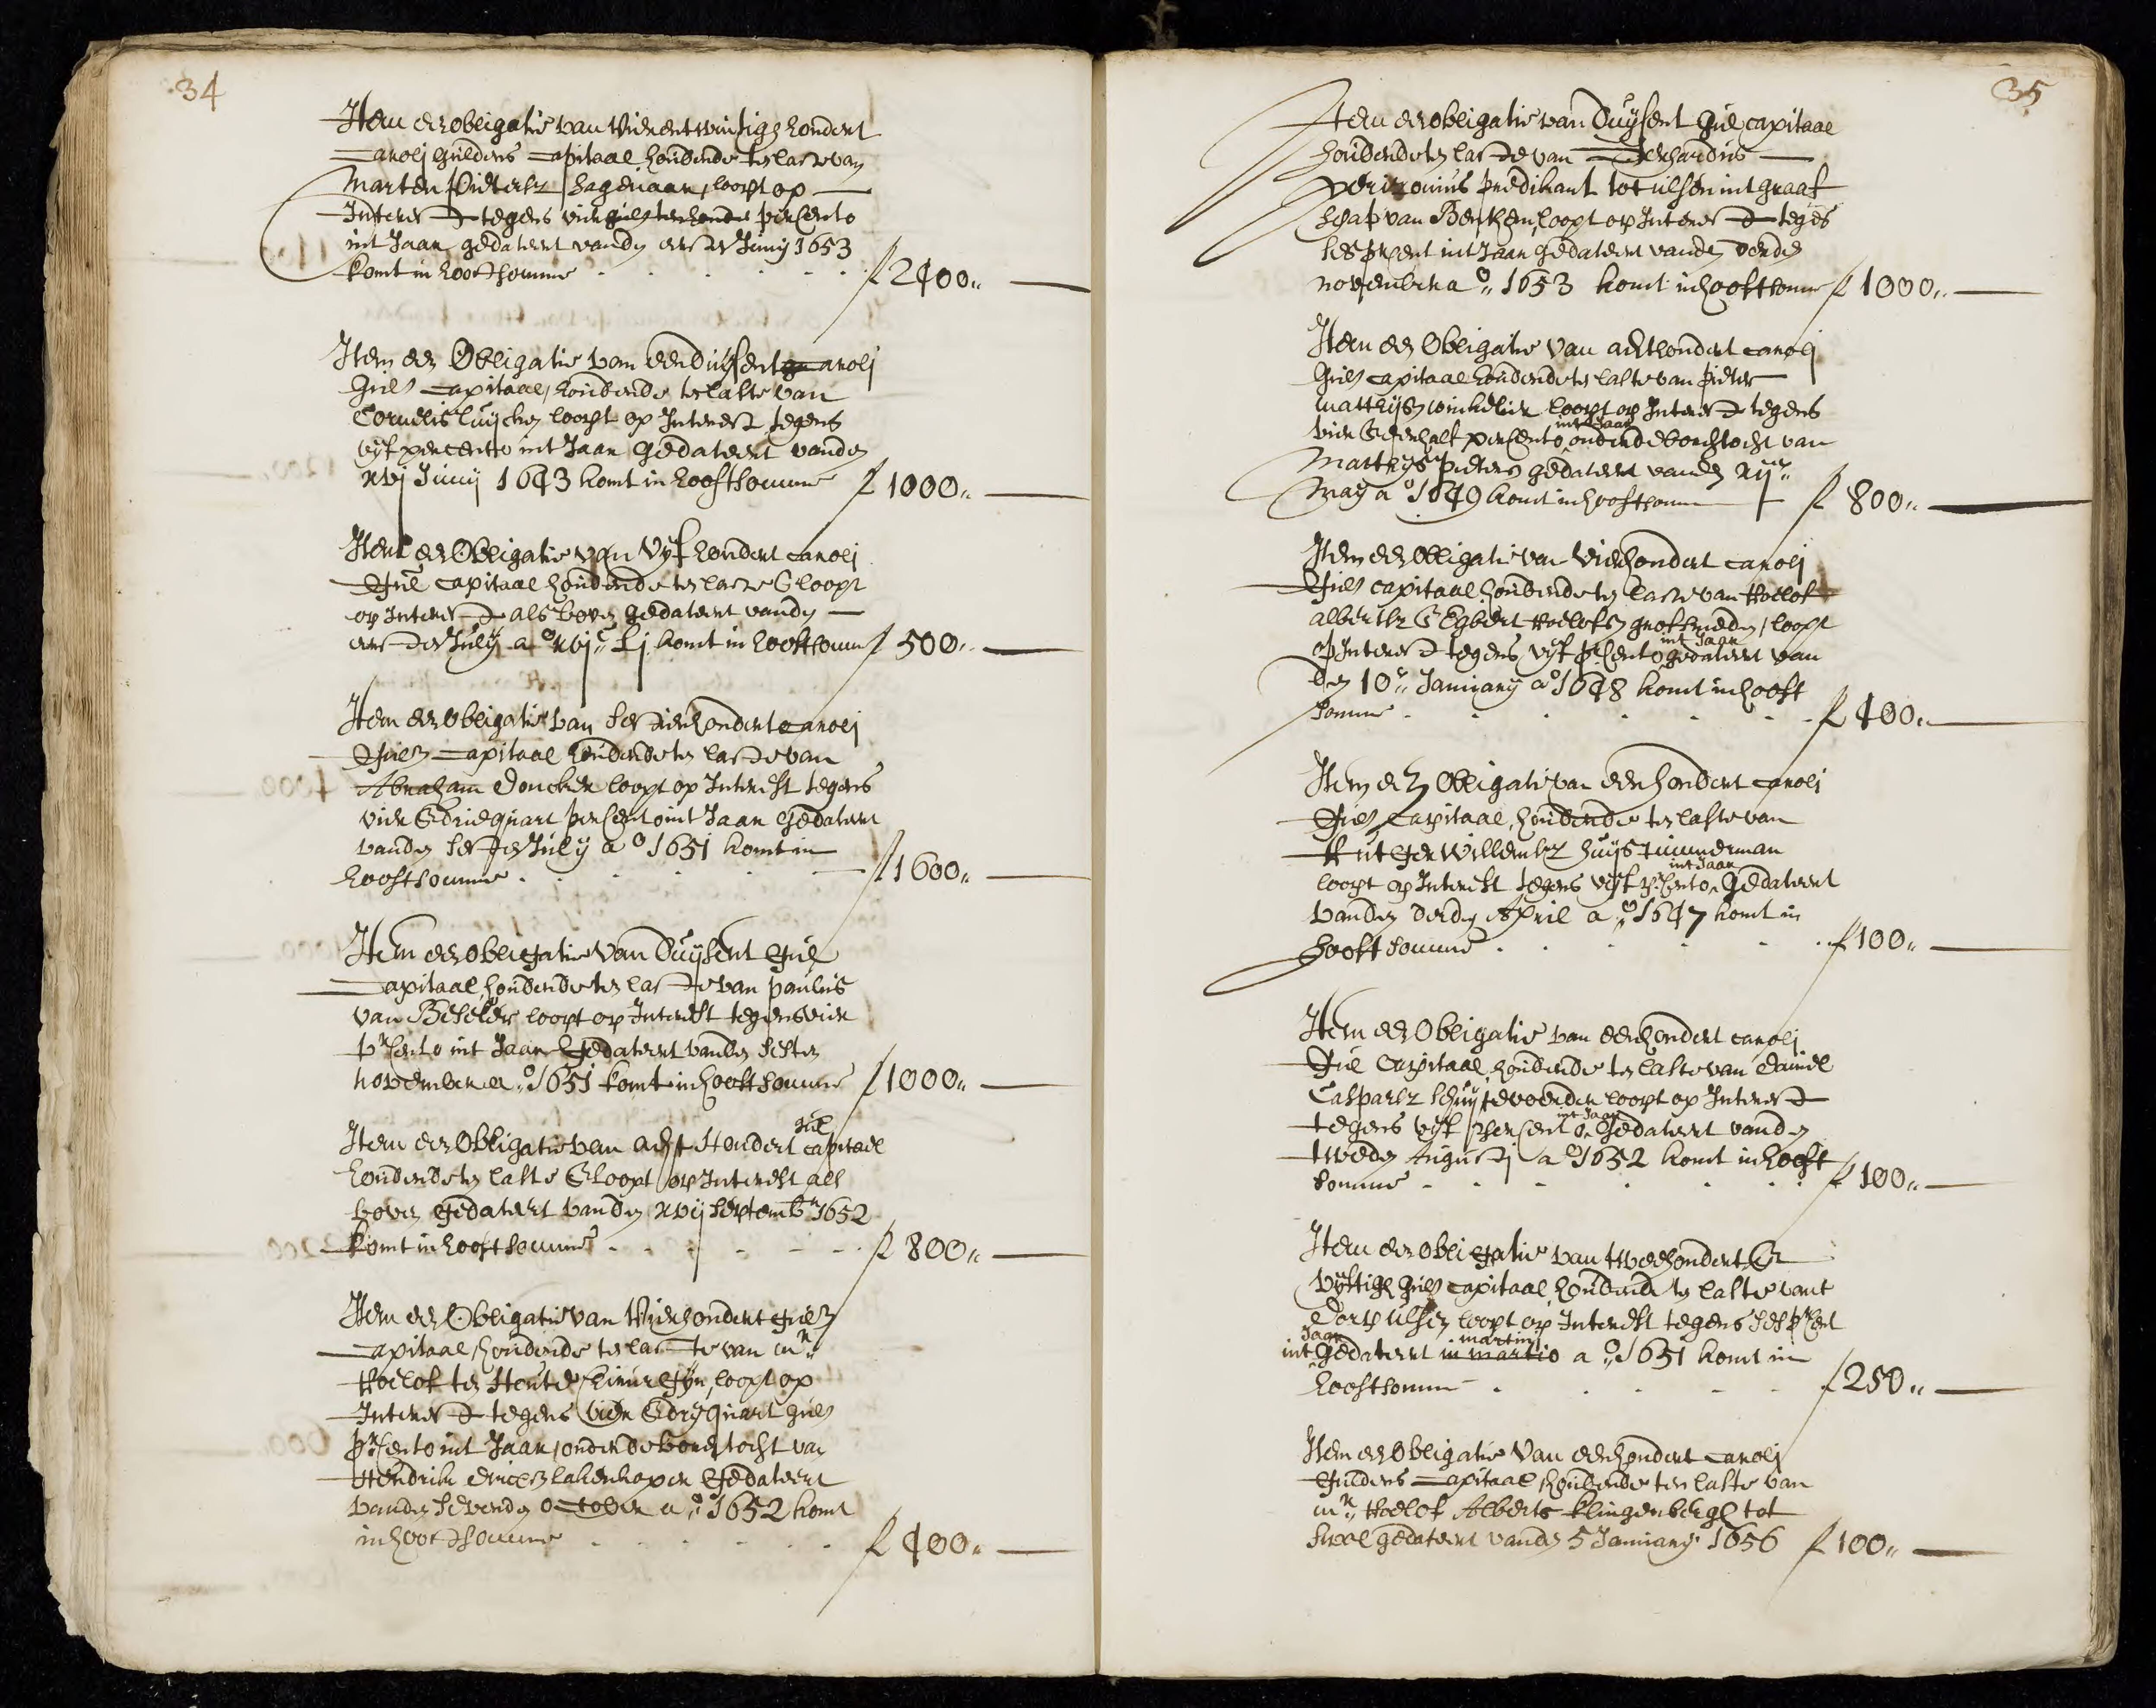 34
Item een obligatie van Vierentwintigh hondert
Caroli guldens Capitaal houdende ten laste van
Marten Pietersz Hagenaar, loopt op
Interest tegens vier guls ten hondt percento
int Jaar gedateert vanden eersten Juny 1653
komt in hooftsomme . . . . . f 2400,,
Item een Obligatie van eenduijsent Caroli
guls Capitaal, houdende ten laste van
Cornelis luijcken loopt op Interest tegens
vijf percento int Jaar gedateert vanden
xvj Junij 1643 komt in hooftsomme f 1000,,
Item een Obligatie van Vijfhondert caroli
Gul Capitaal houdende ten laste & loopt
op Interest als boven gedateert vanden
eersten July a° xvjc Lj komt in hooftsom f 500,,
Item een Obligatie van sestienhondert Caroli
Gulen Capitaal houdende ten laste van
Abraham Doncker loopt op Interest tegens
vier & driequart percento int Jaar gedateert
vanden sesten July a° 1651 komt in
hooftsomme . . . . f 1600,,
Item een obligatie van Duijsent Gul
Capitaal, houdende ten laste van paulus
van Beseler loopt op Interest tegens vier
prcento int Jaar Gedateert vanden sesten
november a° 1651 komt in hooftsomme f 1000,,
gul
Item een Obligatie van acht Hondert capitael
houdende ten laste & loopt op Interest als
boven gedateert vanden xvij septembr 1652
komt in hooftsomme . . . . . f 800,,
Item een Obligatie van Vierhondert gulen
Capitaal, houdende ten laste van mr
Roelof ten Heute Chirurgyn, loopt op
Interest tegens vier & dryquart guls
prcento int Jaar, onder de borchtocht van
Hendrik lakenkoper Gedateert
vanden sevenden October a° 1652 komt
in hooftsomme . . . . . f 400,,
35
Item een obligatie van Duijsent Gul, capitaal
houdende ten laste van Gerhardus
Perizonius predikant tot ulsen int Graaf
schap van Benthem, loopt op Interest tegens
ses prcent int Jaar gedateert vanden derden
november a° 1653 komt in hooftsomme f 1000,,
Item een Obligatie van achthondert caroli
Guls capitaal houdende ten laste van pieter
matthijsz winkelier loopt op Interest tegens
int Jaar
vier & eenhalf percento onder de borchtocht van
Matthijs pieters gedateert vanden xij
May a° 1649 komt in hooftsomme f 800,,
Item een Obligatie van Vierhondert caroli
Guls capitaal, houdende ten laste van Roelof
albertsz & Egbert Roelofsz grofsmeden, loopt
int Jaar
op Interest tegens vijf prcento gedateert van
den 10 January a° 1648 komt in hooft
somme . . . . . f 400,,
Item een Obligatie van eenhondert caroli
Guls Capitaal, houdende ten laste van
Rutger Willemsz huijstimmerman
int Jaar
loopt op Interest tegens vijf prcento, Gedateert
vanden derden April a° 1647 komt in
hooft somme . . . . . f 100,,
Item een Obligatie van eenhondert caroli
Gul Capitaal, houdende ten laste van Daniel
Casparsz schuijtevoerder loopt op Interest
int Jaar
tegens vijf percento, Gedateert vanden
tweden Augusti a° 1652 komt in hooft
somme . . . . . f 100,,
Item een Obligatie van tweehondert &
vijftigh Guls Capitaal, houdende ten laste vant
Dorp ulsen loopt op Interest tegens ses prcent
Jaar martini
int Gedateert in martio a° 1651 komt in
hooftsomme . . . . . f 250,,
Item een Obligatie van eenhondert Caroli
Guldens Capitaal, houdende ten laste van
mr Roelof Alberts Klingenbergh tot
Swol gedateert vanden 5 January 1656 f 100,,